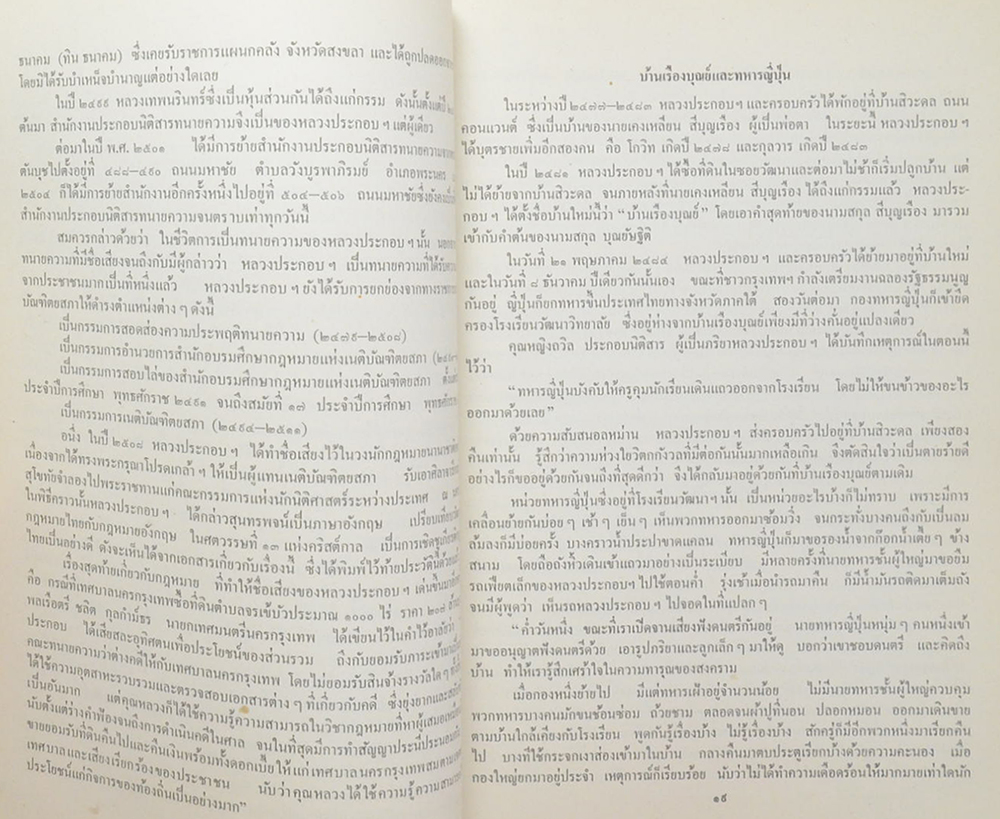 ธนาคม (ทิน ธนาคม) ซึ่งเคยรับราชการแผนกคลัง จังหวัดสงขลา และได้ถูกปลดออก
โดยมิได้รับบำเหน็จบำนาญแต่อย่างใดเลย
ในปี ๒๔๙๙ หลวงเทพนรินทร์ซึ่งเป็นหุ้นส่วนกันได้ถึงแก่กรรม ดังนั้นตั้งแต่ปี
ต้นมา สำนักงานประกอบนิติสารทนายความจึงเป็นของหลวงประกอบ ฯ แต่ผู้เดียว
ต่อมาในปี พ.ศ. ๒๕๐๑ ได้มีการย้ายสำนักงานประกอบนิติสารทนายความจาก
ตันบุชไปตั้งอยู่ที่ ๔๘๘–๔๙๐ ถนนมหาชัย ตำบลวังบูรพาภิรมย์ อำเภอพระนคร
๒๕๐๔ ก็ได้มีการย้ายสำนักงานอีกครั้งหนึ่งไปอยู่ที่ ๕๐๔–๕๐๖ ถนนมหาชัยซึ่งยังคง
สำนักงานประกอบนิติสารทนายความจนตราบเท่าทุกวันนี้
สมควรกล่าวด้วยว่า ในชีวิตการเป็นทนายความของหลวงประกอบ ฯ นั้น
ทนายความที่มีชื่อเสียงจนถึงกับมีผู้กล่าวว่า หลวงประกอบ ฯ เป็นทนายความที่ได้รับ
จากประชาชนมากเป็นที่หนึ่งแล้ว หลวงประกอบ ฯ ยังได้รับการยกย่องจากทาง
บัณฑิตยสภาให้ดำรงตำแหน่งต่าง ๆ ดังนี้
เป็นกรรมการสอดส่องความประพฤติทนายความ (๒๔๗๙–๒๕๐๘)
เป็นกรรมการอำนวยการสำนักอบรมศึกษากฎหมายแห่งเนติบัณฑิตยสภา
เป็นกรรมการสอบไล่ของสำนักอบรมศึกษากฎหมายแห่งเนติบัณฑิตยสภา ตั้งแต่
ประจำปีการศึกษา พุทธศักราช ๒๔๙๑ จนถึงสมัยที่ ๑๗ ประจำปีการศึกษา
เป็นกรรมการเนติบัณฑิตยสภา (๒๔๙๔–๒๕๑๑)
อนึ่ง ในปี ๒๕๐๘ หลวงประกอบ ฯ ได้ทำชื่อเสียงไว้ในวงนักกฎหมายนานาชาติ
เนื่องจากได้ทรงพระกรุณาโปรดเกล้า ฯ ให้เป็นผู้แทนเนติบัณฑิตยสภา
สุโขทัยจำลองไปพระราชทานแก่คณะกรรมการแห่งนักนิติศาสตร์ระหว่างประเทศ ณ
ในพิธีคราวนั้นหลวงประกอบ ฯ ได้กล่าวสุนทรพจน์เป็นภาษาอังกฤษ
กฎหมายไทยกับกฎหมายอังกฤษ ในศตวรรษที่ ๑๓ แห่งคริสต์กาล
ไทยเป็นอย่างดี ดังจะเห็นได้จากเอกสารเกี่ยวกับเรื่องนี้ ซึ่งได้พิมพ์ไว้ท้ายประวัตินี้
เรื่องสุดท้ายเกี่ยวกับกฎหมาย ที่ทำให้ชื่อเสียงของหลวงประกอบ ฯ
คือ กรณีที่เทศบาลนครกรุงเทพซื้อที่ดินตำบลจรเข้บัวประมาณ ๑๐๐๐ ไร่ ราคา ๒๐๘
พลเรือตรี ชลิต กุลกำม์ธร นายกเทศมนตรีนครกรุงเทพ ได้เขียนไว้ในคำไว้อาลัย
ประกอบ ได้เสียสละอุทิศตนเพื่อประโยชน์ของส่วนรวม ถึงกับยอมรับภาระ
คณะทนายความว่าต่างคดีให้กับเทศบาลนครกรุงเทพ โดยไม่ยอมรับสินจ้างรางวัลใด ๆ
ได้ใช้ความอุตสาหะรวบรวมและตรวจสอบเอกสารต่าง ๆ ที่เกี่ยวกับคดี ซึ่งยุ่งยาก
เป็นอันมาก แต่คุณหลวงก็ได้ใช้ความรู้ความสามารถในวิชากฎหมาย
นับตั้งแต่ร่างคำฟ้องจนถึงการดำเนินคดีในศาล จนในที่สุดมีการทำสัญญาประนีประนอม
ขายยอมรับที่ดินคืนไปและคืนเงินพร้อมทั้งดอกเบี้ยให้แก่เทศบาลนครกรุงเทพ
เทศบาลและเสียงเรียกร้องของประชาชน นับว่าคุณหลวงได้ใช้ความรู้ความสามารถ
ประโยชน์แก่กิจการของท้องถิ่นเป็นอย่างมาก”
บ้านเรืองบุณย์และทหารญี่ปุ่น
ในระหว่างปี ๒๔๗๗–๒๔๘๓ หลวงประกอบ ฯ และครอบครัวได้พักอยู่ที่บ้านสิวะดล ถนน
คอนแวนต์ ซึ่งเป็นบ้านของนายเคงเหลียน สีบุญเรือง ผู้เป็นพ่อตา ในระยะนี้ หลวงประกอบ ฯ
ได้บุตรชายเพิ่มอีกสองคน คือ โกวิท เกิดปี ๒๔๗๘ และกุลวาร เกิดปี ๒๔๘๓
ในปี ๒๔๘๑ หลวงประกอบ ฯ ได้ซื้อที่ดินในซอยวัฒนาและต่อมาไม่ช้าก็เริ่มปลูกบ้าน แต่
ไม่ได้ย้ายจากบ้านสิวะดล จนภายหลังที่นายเคงเหลียน สีบุญเรือง ได้ถึงแก่กรรมแล้ว หลวงประ-
กอบ ฯ ได้ตั้งชื่อบ้านใหม่นี้ว่า “บ้านเรืองบุณย์” โดยเอาคำสุดท้ายของนามสกุล สีบุญเรือง มารวม
เข้ากับคำต้นของนามสกุล บุณยัษฐิติ
ในวันที่ ๒๑ พฤษภาคม ๒๔๘๔ หลวงประกอบ ฯ และครอบครัวได้ย้ายมาอยู่ที่บ้านใหม่
และในวันที่ ๘ ธันวาคม ปีเดียวกันนั้นเอง ขณะที่ชาวกรุงเทพฯ กำลังเตรียมงานฉลองรัฐธรรมนูญ
กันอยู่ ญี่ปุ่นก็ยกทหารขึ้นประเทศไทยทางจังหวัดภาคใต้ สองวันต่อมา กองทหารญี่ปุ่นก็เข้ายึด
ครองโรงเรียนวัฒนาวิทยาลัย ซึ่งอยู่ห่างจากบ้านเรืองบุณย์เพียงมีที่ว่างคั่นอยู่แปลงเดียว
คุณหญิงถวิล ประกอบนิติสาร ผู้เป็นภริยาหลวงประกอบ ฯ ได้บันทึกเหตุการณ์ในตอนนี้
ไว้ว่า
“ทหารญี่ปุ่นบังคับให้ครูคุมนักเรียนเดินแถวออกจากโรงเรียน โดยไม่ให้ขนข้าวของอะไร
ออกมาด้วยเลย”
ด้วยความสับสนอลหม่าน หลวงประกอบ ฯ ส่งครอบครัวไปอยู่ที่บ้านสิวะดล เพียงสอง
คืนเท่านั้น รู้สึกว่าความห่วงใยวิตกกังวลที่มีต่อกันนั้นมากเหลือเกิน จึงตัดสินใจว่าเป็นตายร้ายดี
อย่างไรก็ขออยู่ด้วยกันจนถึงที่สุดดีกว่า จึงได้กลับมาอยู่ด้วยกันที่บ้านเรืองบุณย์ตามเดิม
หน่วยทหารญี่ปุ่นซึ่งอยู่ที่โรงเรียนวัฒนาฯ นั้น เป็นหน่วยอะไรบ้างก็ไม่ทราบ เพราะมีการ
เคลื่อนย้ายกันบ่อย ๆ เช้า ๆ เย็น ๆ เห็นพวกทหารออกมาซ้อมวิ่ง จนกระทั่งบางคนถึงกับเป็นลม
ล้มลงก็มีบ่อยครั้ง บางคราวน้ำประปาขาดแคลน ทหารญี่ปุ่นก็มาขอรองน้ำจากก๊อกน้ำเตี้ย ๆ ข้าง
สนาม โดยถือถังหิ้วเดินเข้าแถวมาอย่างเป็นระเบียบ มีหลายครั้งที่นายทหารชั้นผู้ใหญ่มาขอยืม
รถเฟียตเล็กของหลวงประกอบ ฯ ไปใช้ตอนค่ำ รุ่งเช้าเมื่อนำรถมาคืน ก็มีน้ำมันรถติดมาเต็มถัง
จนมีผู้พูดว่า เห็นรถหลวงประกอบ ฯ ไปจอดในที่แปลก ๆ
“ค่ำวันหนึ่ง ขณะที่เราเปิดจานเสียงฟังดนตรีกันอยู่ นายทหารญี่ปุ่นหนุ่ม ๆ คนหนึ่งเข้า
มาขออนุญาตฟังดนตรีด้วย เอารูปภริยาและลูกเล็ก ๆ มาให้ดู บอกว่าเขาชอบดนตรี และคิดถึง
บ้าน ทำให้เรารู้สึกเศร้าใจในความทารุณของสงคราม
เมื่อกองหนึ่งย้ายไป มีแต่ทหารเฝ้าอยู่จำนวนน้อย ไม่มีนายทหารชั้นผู้ใหญ่ควบคุม
พวกทหารบางคนมักขนช้อนซ่อม ถ้วยชาม ตลอดจนผ้าปูที่นอน ปลอกหมอน ออกมาเดินขาย
ตามบ้านใกล้เคียงกับโรงเรียน พูดกันรู้เรื่องบ้าง ไม่รู้เรื่องบ้าง สักครู่ก็มีอีกพวกหนึ่งมาเรียกคืน
ไป บางทีก็ใช้กระจกเงาส่องเข้ามาในบ้าน กลางคืนมาตบประตูเรียกบ้างด้วยความคะนอง เมื่อ
กองใหญ่ยกมาอยู่ประจำ เหตุการณ์ก็เรียบร้อย นับว่าไม่ได้ทำความเดือดร้อนให้มากมายเท่าใดนัก
๑๙